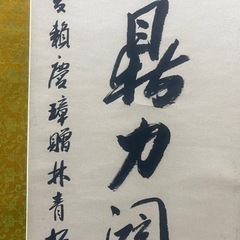 鼎力
賴慶璋贈林青